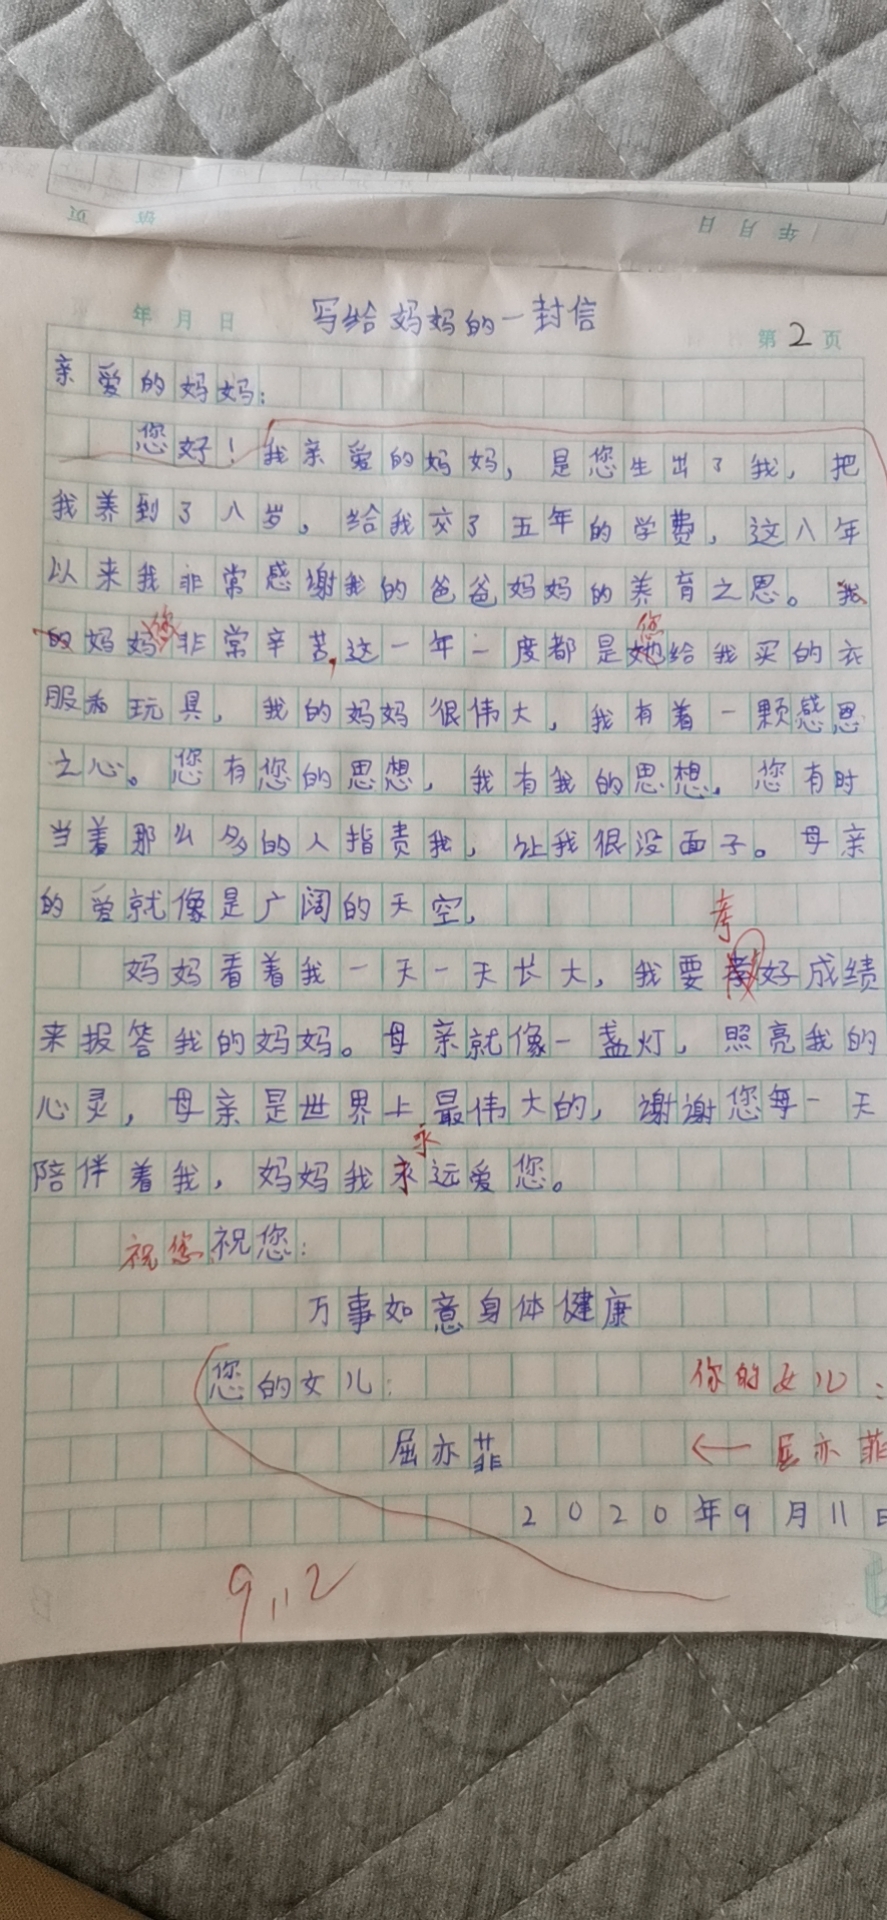 年 月 日
写给妈妈的一封信
年 月 日
第2页
亲爱的妈妈：
您好！我亲爱的妈妈，是您生出了我，把
我养到了八岁。给我交了五年的学费，这八年
以来我非常感谢我的爸爸妈妈的养育之恩。我
您 您
的妈妈非常辛苦，这一年一度都是她给我买的衣
服和玩具，我的妈妈很伟大，我有着一颗感恩
之心。您有您的思想，我有我的思想，您有时
当着那么多的人指责我，让我很没面子。母亲
的爱就像是广阔的天空，
考
妈妈看着我一天一天长大，我要好成绩
来报答我的妈妈。母亲就像一盏灯，照亮我的
心灵，母亲是世界上最伟大的，谢谢您每一天
永
陪伴着我，妈妈我永远爱您。
祝您祝您：
万事如意身体健康
您的女儿： 你的女儿：
屈亦菲 ← 屈亦菲
2020年9月11日
9.12